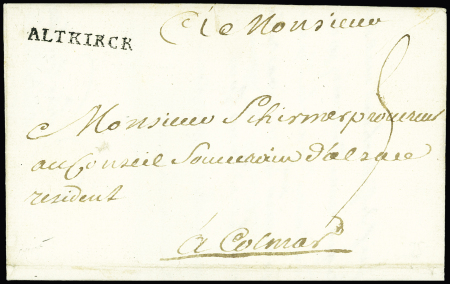 ALTKIRCK
A Monsieur
Monsieur Schirmer procureur
au Conseil Souverain d'alsace
resident
à Colmar